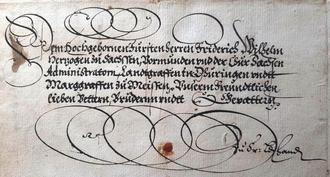 Dem Hochgebornen Fürsten Herren Friderich Wilhelm
Hertzogen zu Sachssen, Vormunden vnd der Chur Sachsen
Administratorn, Landtgraffen in Dhüringen vndt
Marggraffen zu Meissen, Vnserm freundtlichen
lieben Vettern, Brudern vndt Gevattern